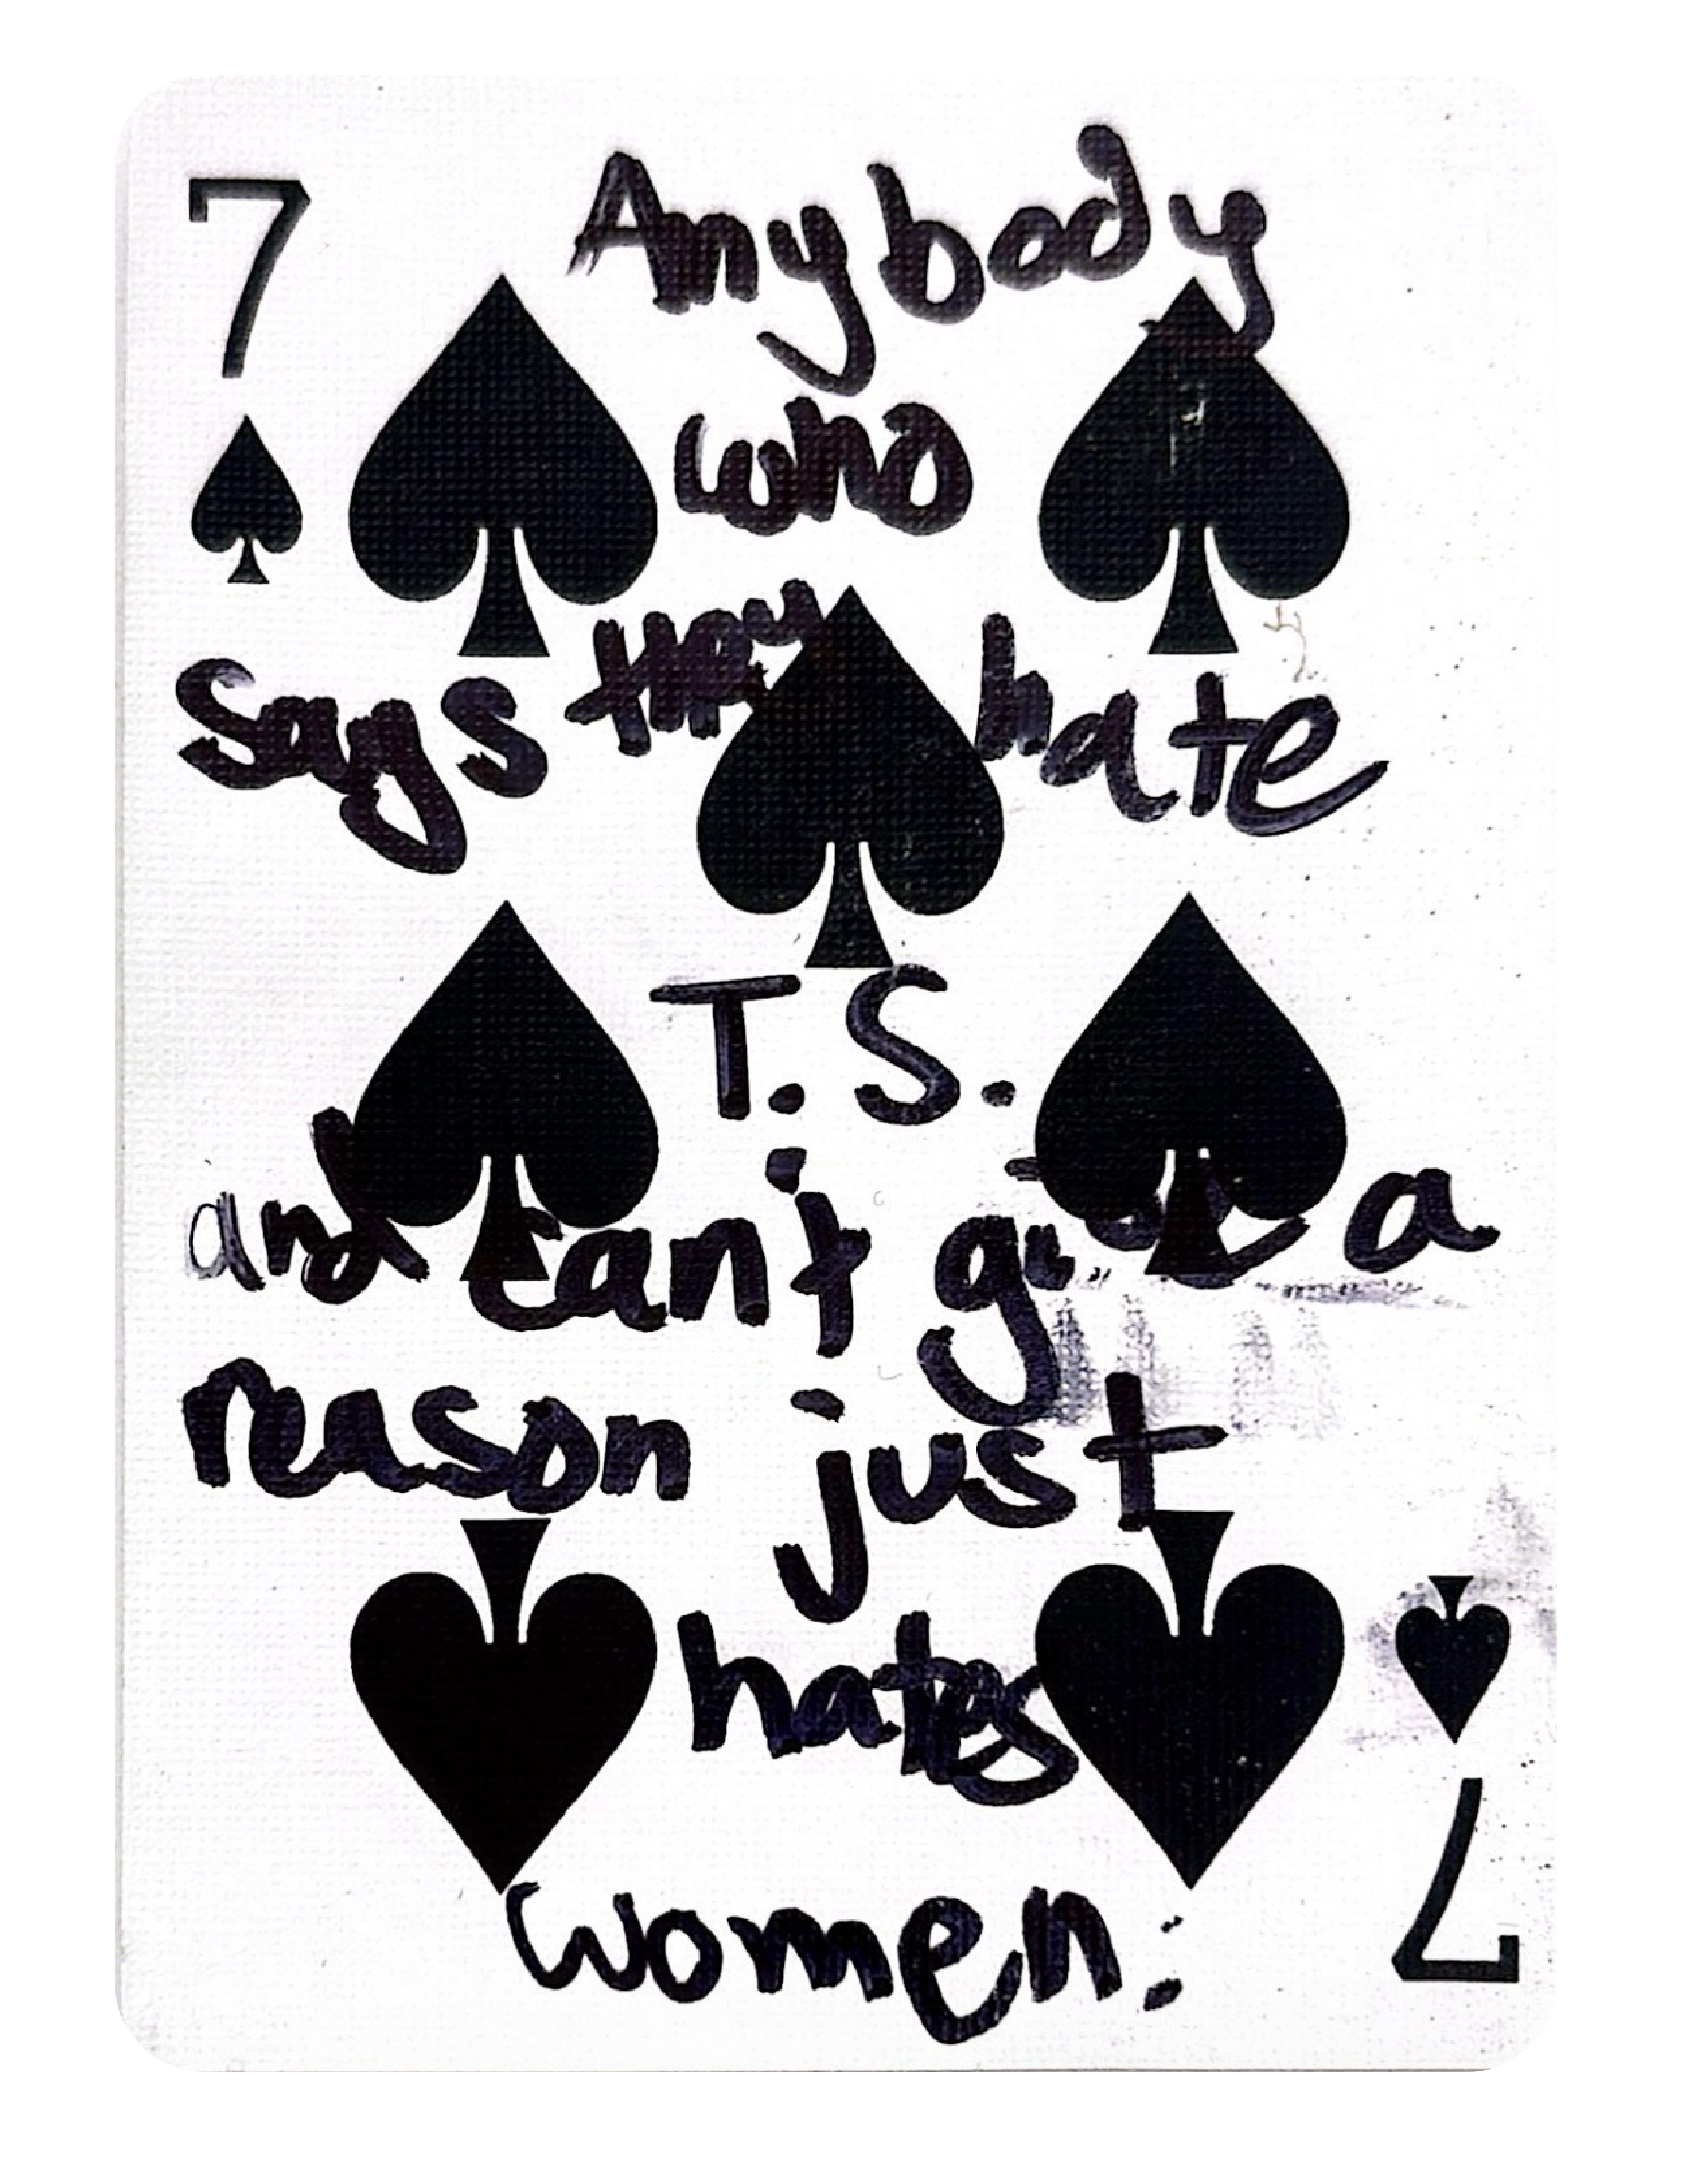 7
Anybody
who
says they hate
T.S.
and can't give a
reason just
hates
women.
7